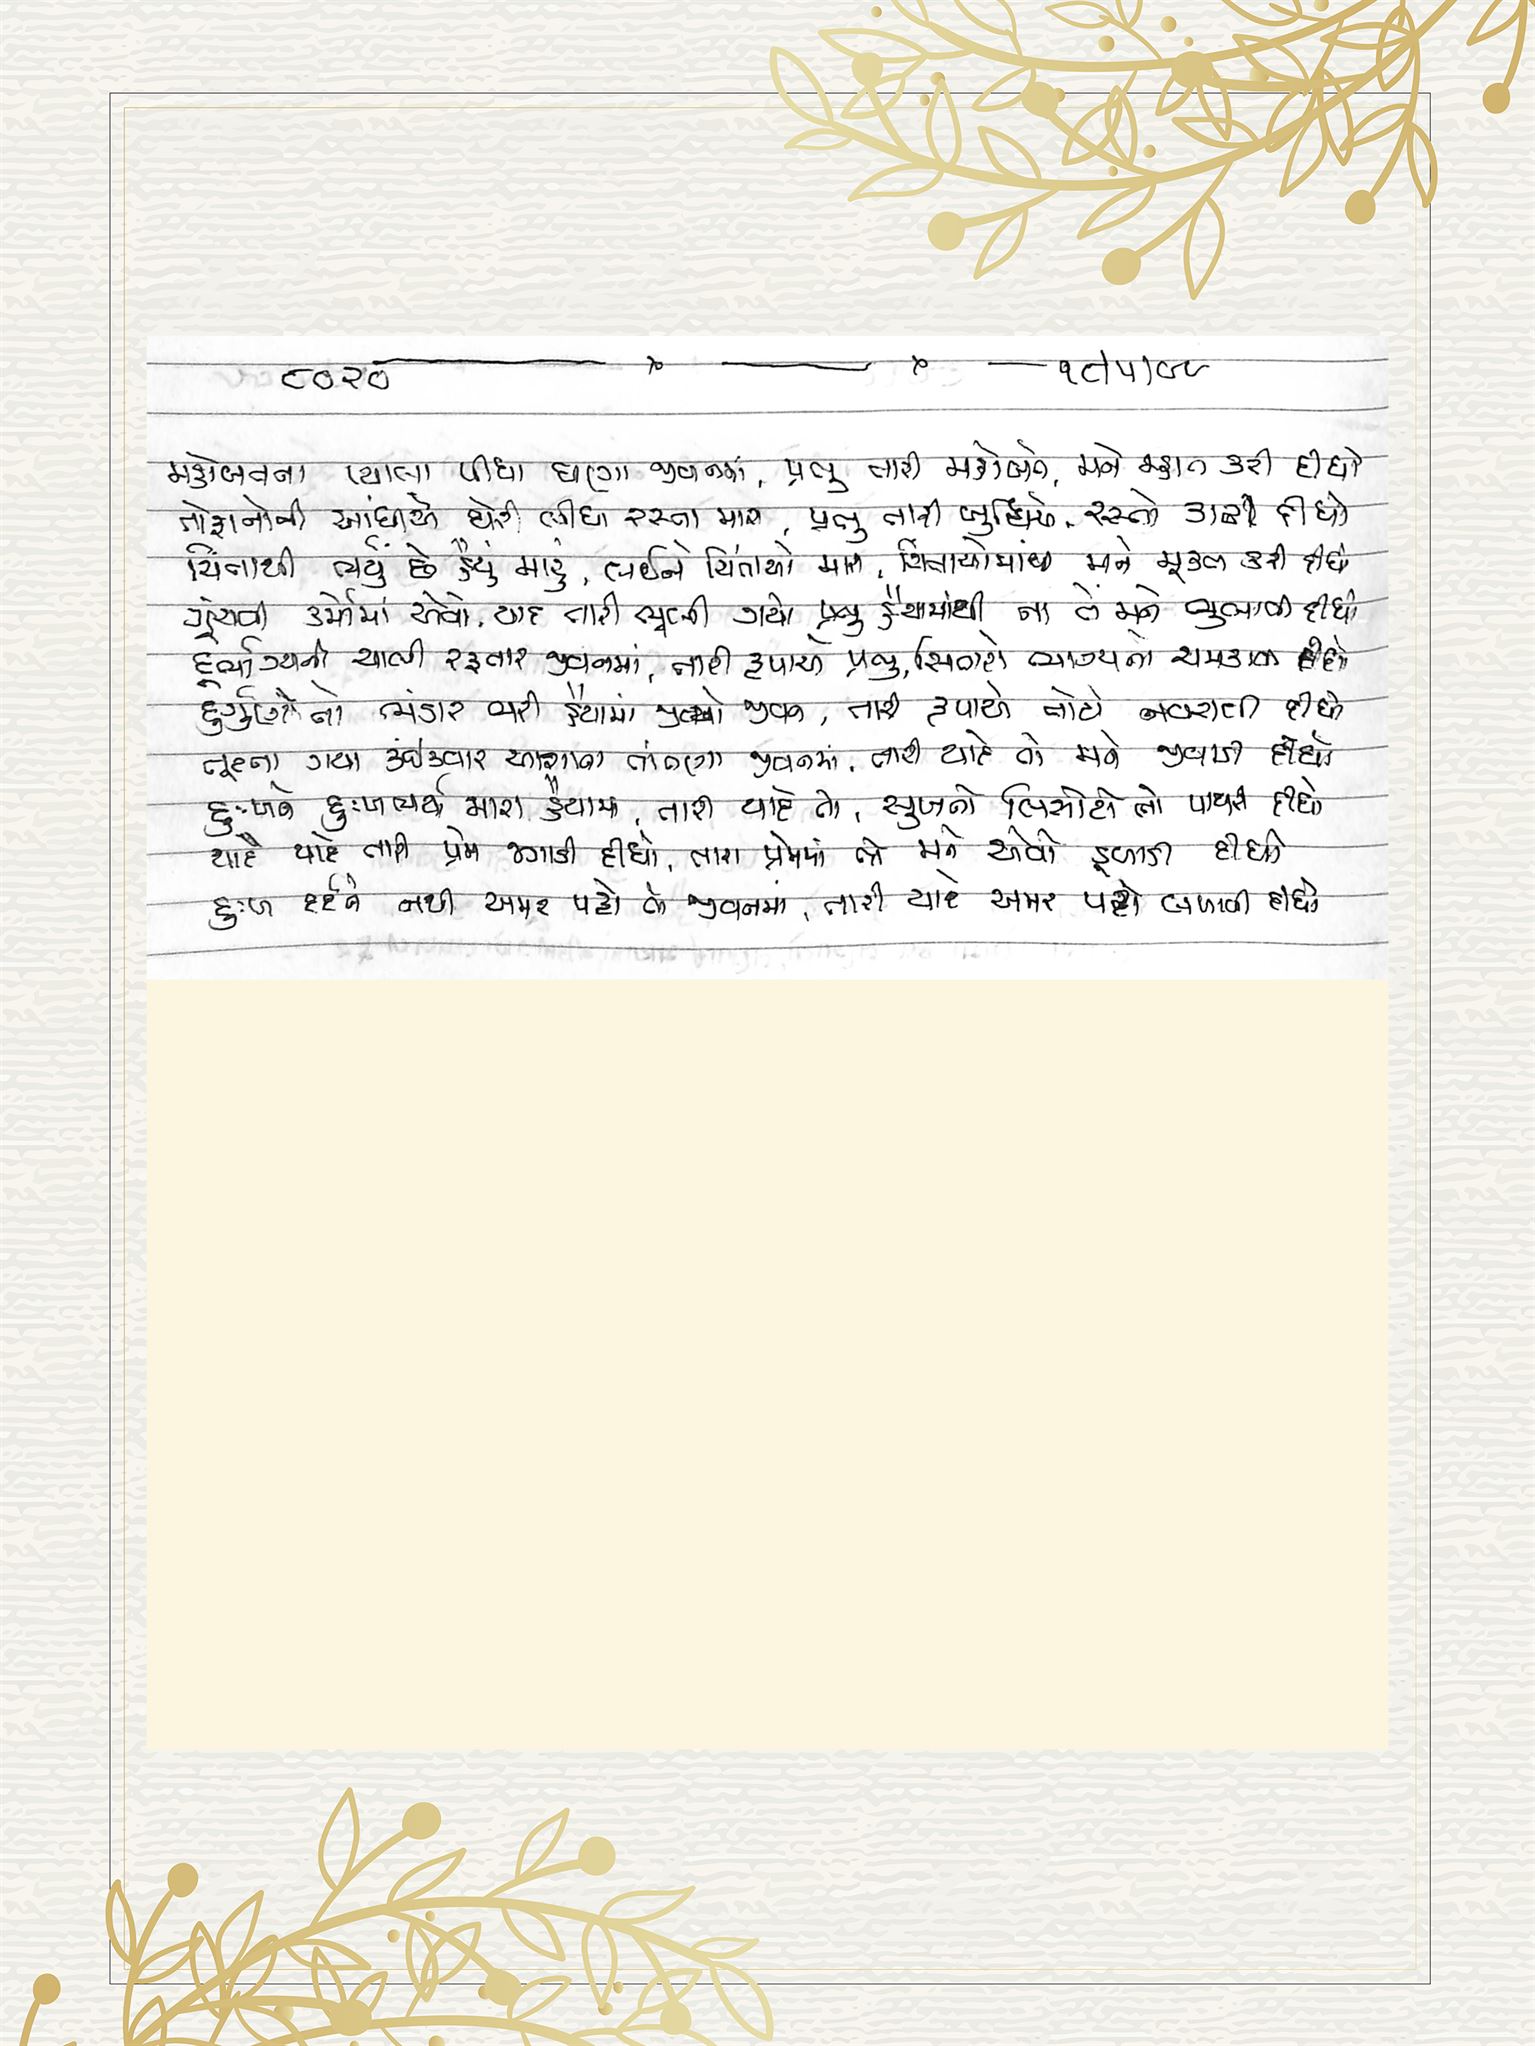 ૮૦૨૦ ૧૮/૫/૯૯
મહોબતના પ્યાલા પીધા ઘણા જીવનમાં, પ્રભુ તારી મહોબતે, મને મહાન કરી દીધો
તોફાનોની આંધીએ ઘેરી લીધા રસ્તા મારા, પ્રભુ તારી બુદ્ધિએ, રસ્તો કાઢી દીધો
ચિંતાથી ભર્યું છે હૈયું મારું, લઈને ચિંતાઓ મારી, ચિંતાઓમાંથી મને મુક્ત કરી દીધો
ગૂંથાવી કર્મોમાં એવો, યાદ તારી ભૂલી ગયો પ્રભુ હૈયામાંથી ના તેં મને ભુલાવી દીધો
દુર્ભાગ્યની ચાલી રફતાર જીવનમાં, તારી કૃપાએ પ્રભુ, સિતારો ભાગ્યનો ચમકાવી દીધો
દુર્ગુણોનો ભંડાર ભરી હૈયામાં જીવ્યો જીવન, તારી કૃપાએ નવરાવી દીધો
તૂટતા ગયા કંઈકવાર આશાના તાંતણા જીવનમાં, તારી યાદે તો મને જીવાડી દીધો
દુઃખને દુઃખ ભર્યા મારા હૈયામાં, તારી યાદે તો, સુખનો લિસોટો તો પાથરી દીધો
યાદે યાદે તારી પ્રેમ જગાડી દીધો, તારા પ્રેમમાં તો મને એવો ડુબાડી દીધો
દુઃખ દર્દને નથી અમર પટ્ટો કે જીવનમાં, તારી યાદે અમર પટ્ટો બનાવી દીધો